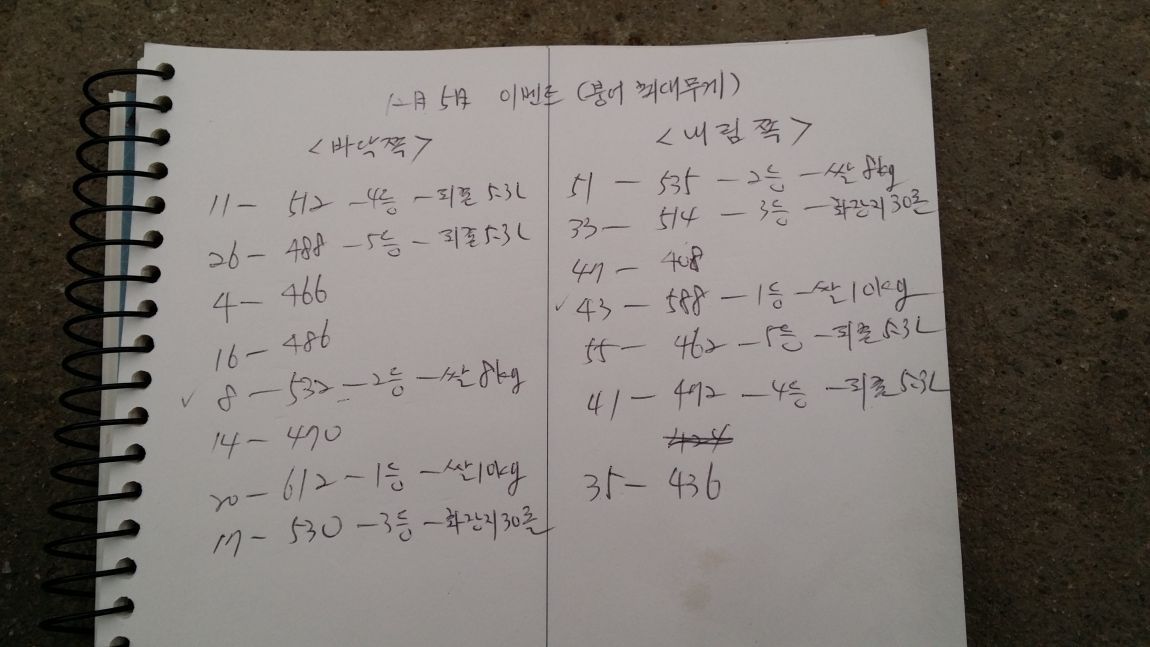 12月 5日 이벤트 (붕어 최대무게)
<바닥쪽>
11 - 512 - 4등 - 퍼퓸 5.3L
26 - 488 - 5등 - 퍼퓸 5.3L
4 - 466
16 - 486
✓ 8 - 532 - 2등 - 쌀 8kg
14 - 470
20 - 612 - 1등 - 쌀 10kg
17 - 530 - 3등 - 화장지 30롤
<내림쪽>
51 - 535 - 2등 - 쌀 8kg
33 - 514 - 3등 - 화장지 30롤
47 - 408
✓ 43 - 588 - 1등 - 쌀 10kg
55 - 462 - 5등 - 퍼퓸 5.3L
41 - 472 - 4등 - 퍼퓸 5.3L
424
35 - 436